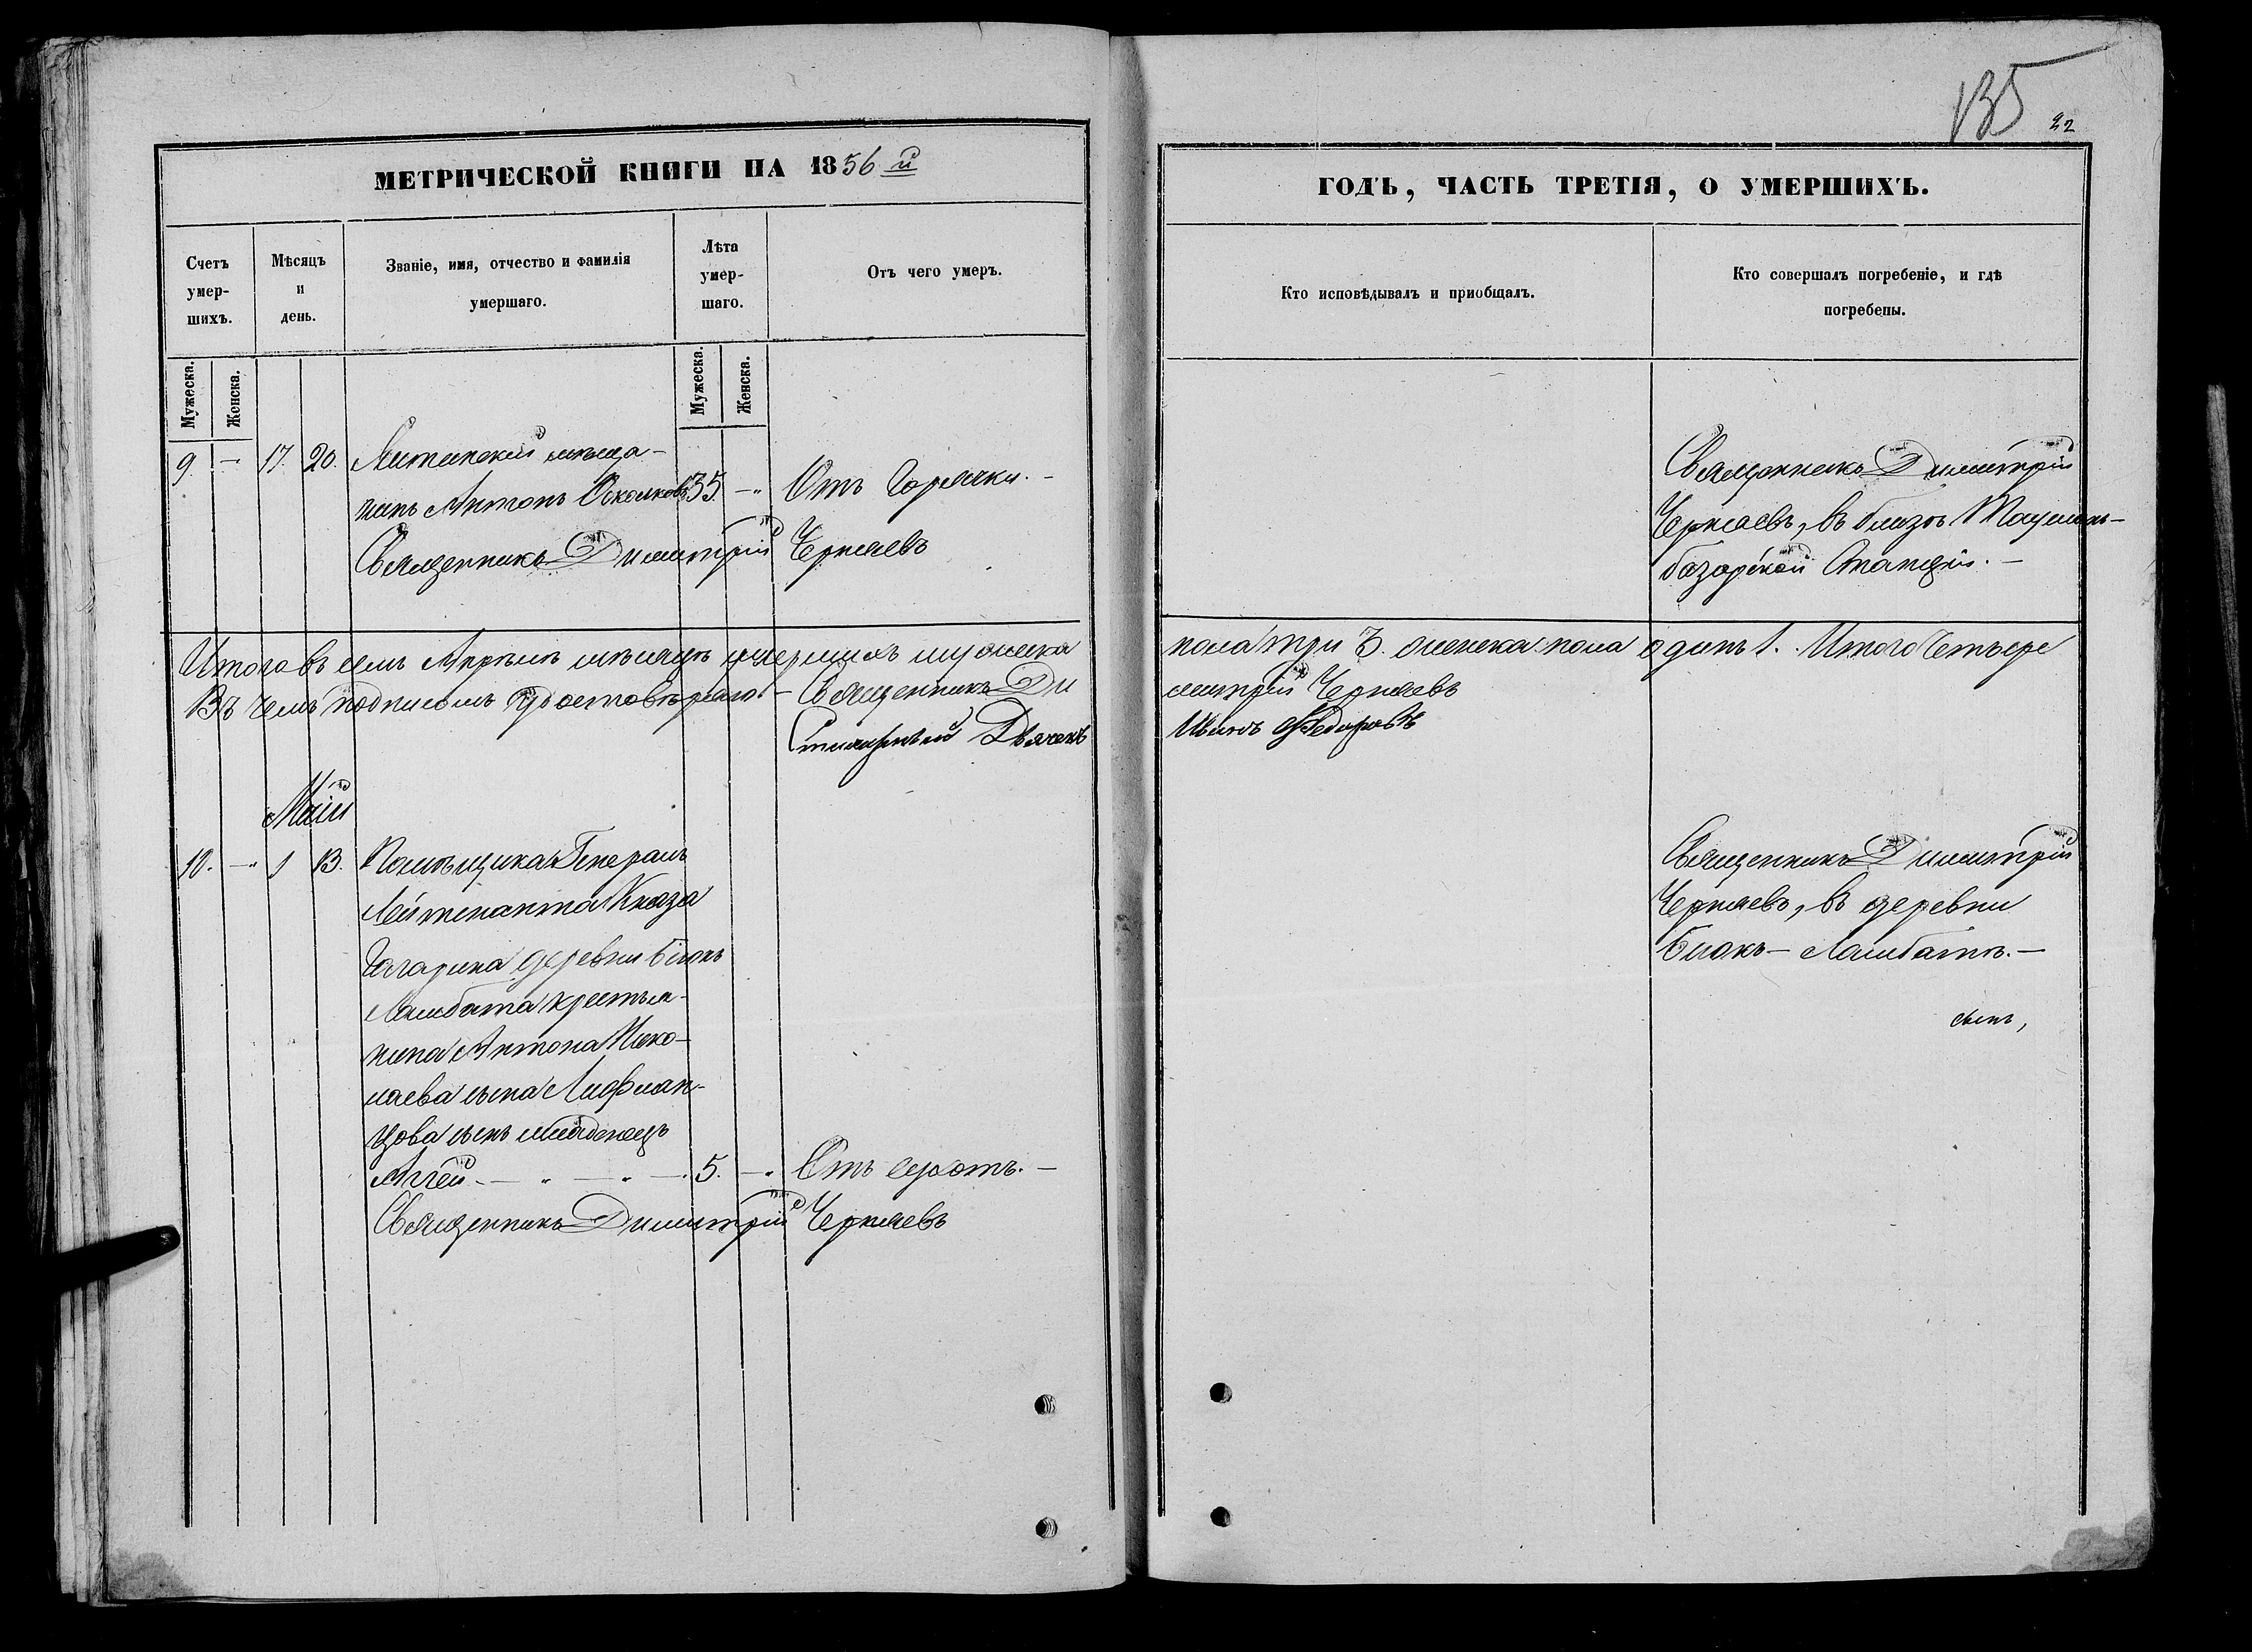 135
22
МЕТРИЧЕСКОЙ КНИГИ НА 1856й
ГОДЪ, ЧАСТЬ ТРЕТІЯ, О УМЕРШИХЪ.
Счетъ умер-шихъ.
Мѣсяцъ и день.
Званіе, имя, отчество и фамилія умершаго.
Лѣта умер-шаго.
Отъ чего умеръ.
Кто исповѣдывалъ и приобщалъ.
Кто совершалъ погребеніе, и гдѣ погребены.
Мужеска.
Женска.
Мужеска.
Женска.
9. — 17. 20. мѣща-
нинъ Антонъ 35. — Отъ Горячки. —
Священникъ Димитрій Черняевъ
Священникъ Димитрій
Черняевъ, въ близъ
базарской Станціи. —
Итого въ семъ Апрѣлѣ мѣсяцѣ умершихъ мужеска
пола три 3. женска пола одинъ 1. Итого Четыре
Въ чемъ подписомъ удостовѣряю — Священникъ Ди
митрій Черняевъ
Дьячекъ
Иванъ Федоровъ
Маій
10. — 1 13. Помѣщика Генералъ
Лейтенанта Князя
Гагарина деревни Біюкъ
Ламбата крестья-
нина Антона Нико-
лаева сына Лифлян-
цова сынъ младенецъ
Аггей — — 5. — Отъ —
Священникъ Димитрій Черняевъ
Священникъ Димитрій
Черняевъ, въ деревни
Біюкъ — Ламбатъ. —
сынъ,